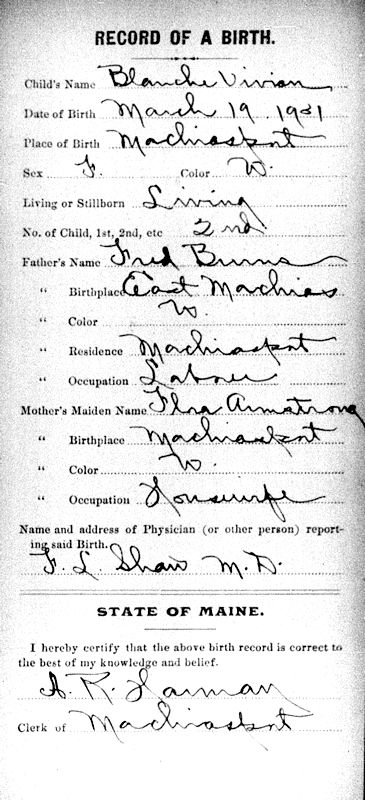 RECORD OF A BIRTH.
Child's Name Blanche Vivian
Date of Birth March 19 1921
Place of Birth Machiasport
Sex F. Color W.
Living or Stillborn Living
No. of Child, 1st, 2nd, etc 2nd
Father's Name Fred Burns
" Birthplace East Machias
" Color W.
" Residence Machiasport
" Occupation Laborer
Mother's Maiden Name Flora Armstrong
" Birthplace Machiasport
" Color W.
" Occupation Housewife
Name and address of Physician (or other person) report-
ing said Birth.
F. L. Shaw M.D.
STATE OF MAINE.
I hereby certify that the above birth record is correct to
the best of my knowledge and belief.
A. R.
Clerk of Machiasport